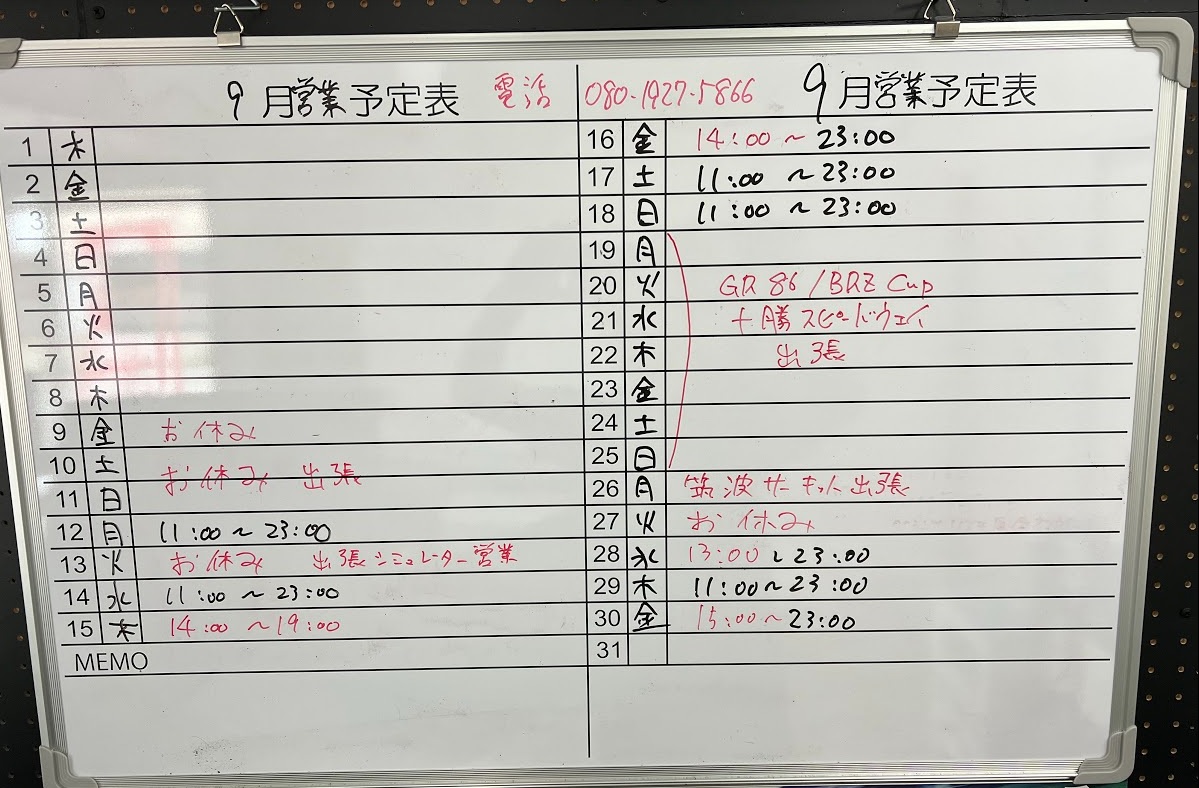 9月営業予定表 電話 080-1927-5866 9月営業予定表
1 木
2 金
3 土
4 日
5 月
6 火
7 水
8 木
9 金 お休み
10 土 お休み 出張
11 日
12 月 11:00 ~ 23:00
13 火 お休み 出張シミュレーター営業
14 水 11:00 ~ 23:00
15 木 14:00 ~ 19:00
MEMO
16 金 14:00 ~ 23:00
17 土 11:00 ~ 23:00
18 日 11:00 ~ 23:00
19 月
20 火 GR 86 / BRZ Cup
21 水 十勝スピードウェイ
22 木 出張
23 金
24 土
25 日
26 月 筑波サーキット出張
27 火 お休み
28 水 13:00 ~ 23:00
29 木 11:00 ~ 23:00
30 金 15:00 ~ 23:00
31